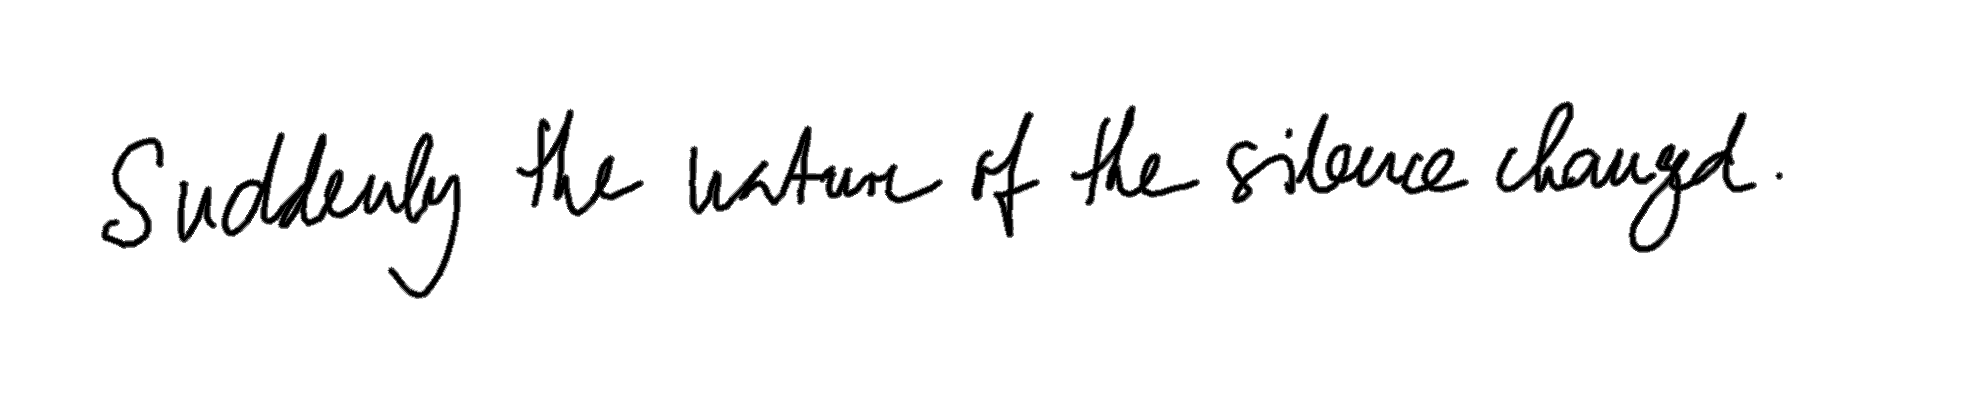 Suddenly the nature of the silence changed.